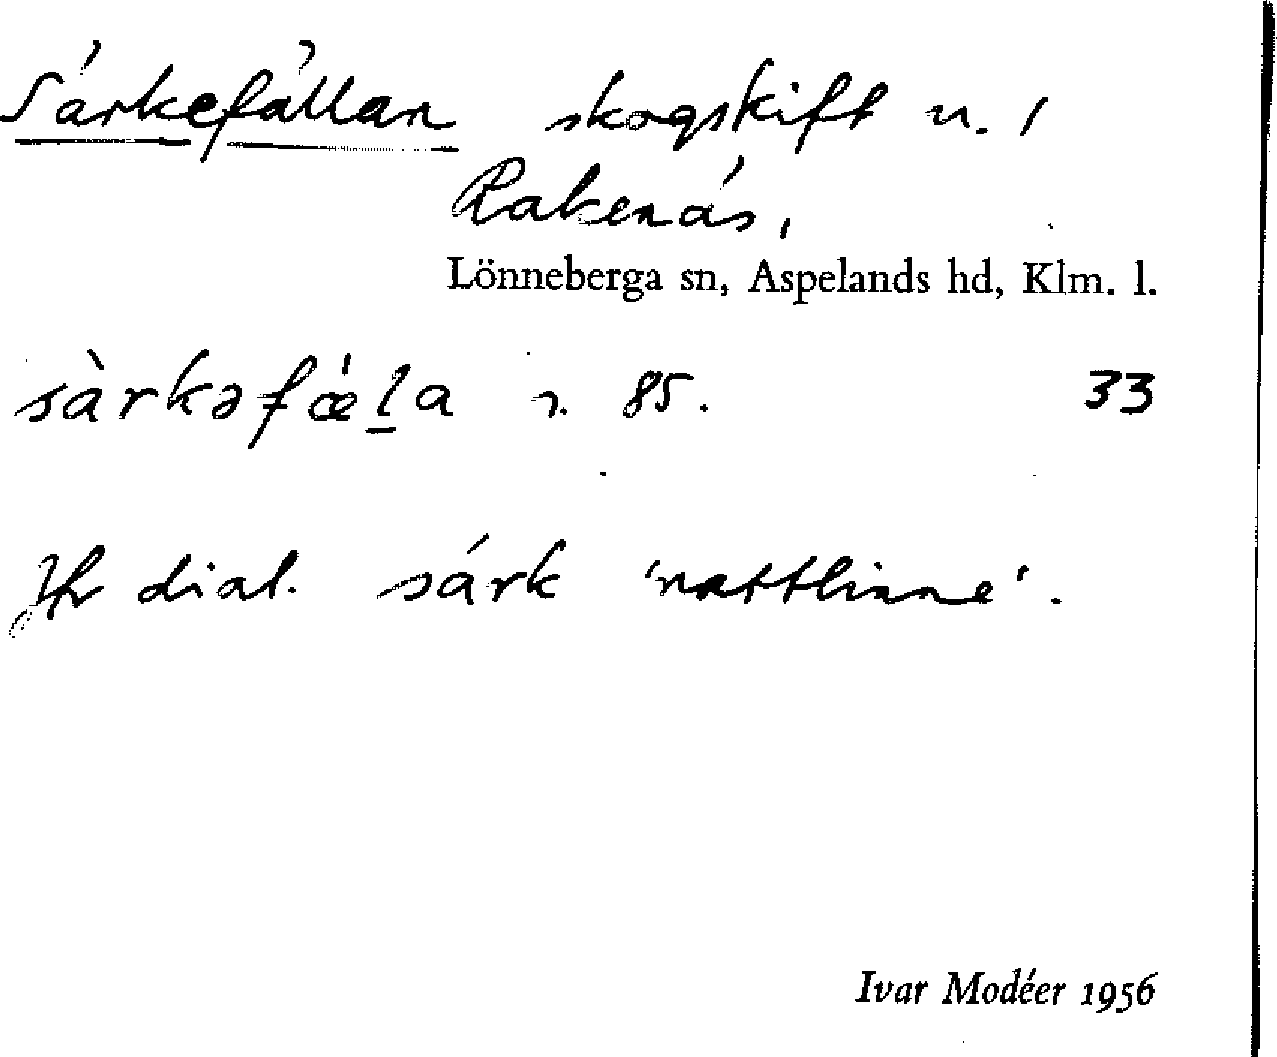 Särkefällan skogskift n. 1
Rakenäs,
Lönneberga sn, Aspelands hd, Klm. l.
sàrkəfǽḻa r. 85. 33
Jfr dial. särk 'nattlinne'.
Ivar Modéer 1956